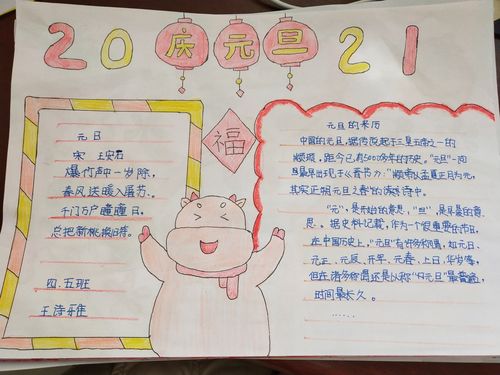 20庆元旦21
福
元日
宋 王安石
爆竹声中一岁除,
春风送暖入屠苏。
千门万户曈曈日,
总把新桃换旧符。
四.五班
王诗雅
元旦的来历
中国的元旦,据传说起于三皇五帝之一的
颛顼,距今已有5000多年的历史。"元旦"一词
最早出现于《晋书》:"颛帝以孟夏正月为元,
其实正朔元旦之春"的诗中。
"元",是开始的意思,"旦",是早晨的意
思。据史料记载,作为一个很重要的节日,
在中国历史上,"元旦"有好多称谓,如元日、
元正、元辰、开年、元春、上日、华岁等,
但在诸多称谓还是以称"元旦"最普遍,
时间最长久。
......